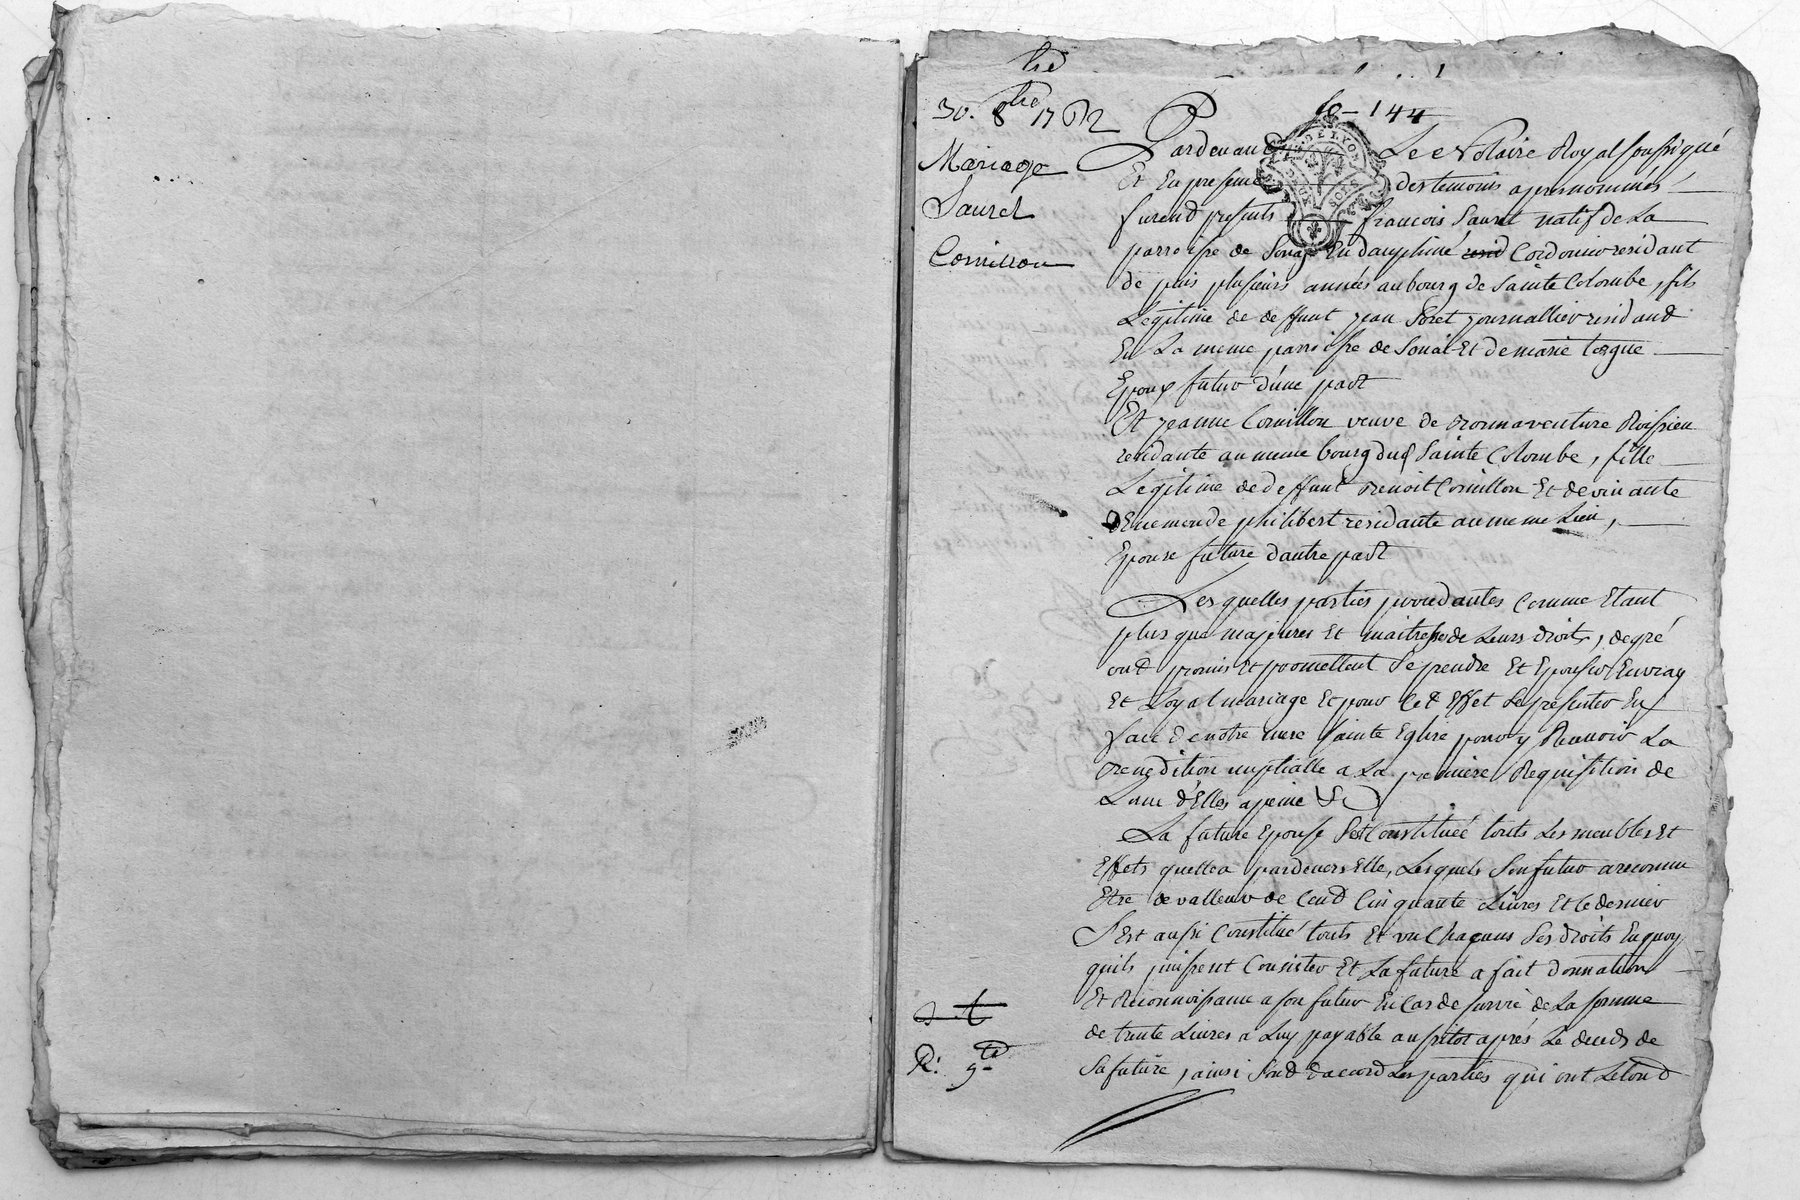 30. 8bre 1762
Mariage
Sauret
Cornillon
fo - 144
Pardevant Le Notaire Royal soussigné
Et En presence des temoins apres nommés
furend presents françois Sauret natif de La
parroisse de En dauphiné Cordonnier residant
de puis plusieurs années au bourg de Sainte Colombe, fils
Legitime de deffunt jean Soret journallier residand
En La meme parroisse de Et de marie torgue
Epoux futur d'une part
Et jeanne Cornillon veuve de Bonnaventure Roissieu
residante au meme bourg dud Sainte Colombe, fille
Legitime de deffunt Benoit Cornillon Et de vivante
philibert residante au meme Lieu,
Epouse future dautre part
Lesquelles parties proudantes Comme Etant
plus que majeures Et maitresse de Leurs droits, de gré
ond promis Et promettent Se prendre Et Epouser En vray
Et Loyal mariage Et pour Ced Effet Se presenter En
face de notre mere Sainte Eglise pour y Recevoir La
Benedition nuptialle a La premiere Requisition de
Lune d'Elles a peine &
La future Epouse Sest Constituée touts Les meubles Et
Effets quelle a pardevers Elle, Lesquels Son futur a reconnu
Etre de valleur de Cend Cinquante Livres Et le dernier
S'Est aussi Constitué touts Et un Chacuns Ses droits En quoy
quils puissent Consister Et La future a fait donnation
Et Reconnoissance a son futur En Cas de survie de La somme
de trente Livres a Luy payable aussitot après Le deceds de
Sa future, ainsi Sond daccord Les parties qui ont Le tout
R: 9